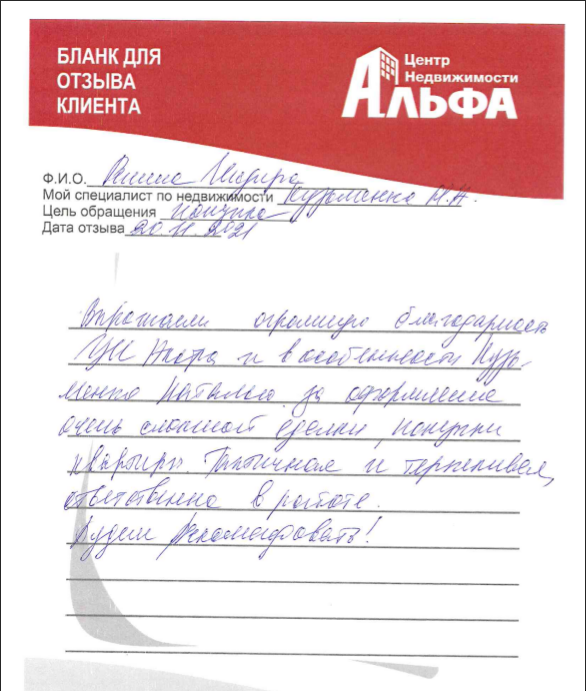 БЛАНК ДЛЯ
ОТЗЫВА
КЛИЕНТА
Центр
Недвижимости
АЛЬФА
Ф.И.О.
Мой специалист по недвижимости Кузьменко Н.Н.
Цель обращения покупка
Дата отзыва 20.11.2021
Выражаем огромную благодарность
ЦН Альфа и в особенности Кузь-
менко Наталью за оформление
очень сложной сделки, покупки
квартиры. Тактичная и терпеливая,
ответственна в работе.
Будем рекомендовать!